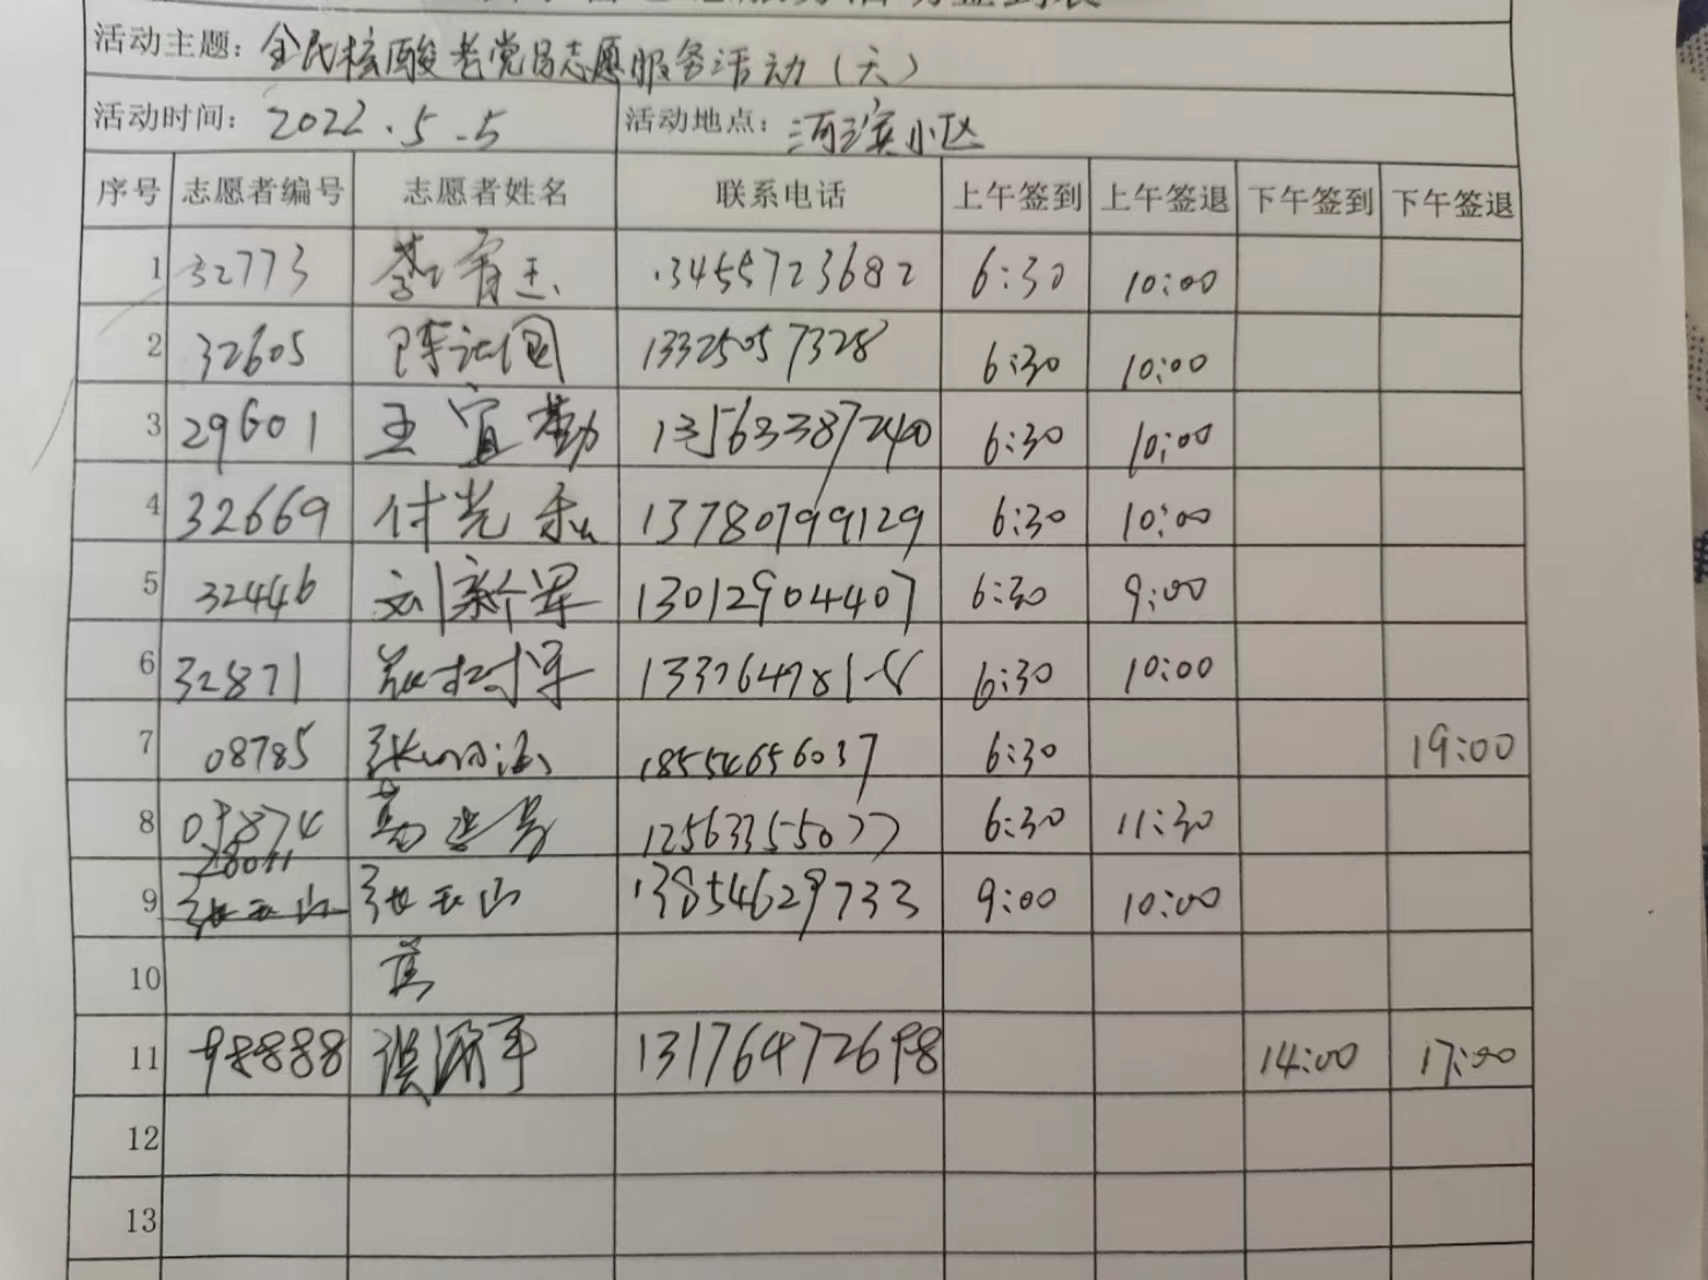 活动主题：全民核酸老党员志愿服务活动（六）
活动时间：2022.5.5 活动地点：河滨小区
序号 志愿者编号 志愿者姓名 联系电话 上午签到 上午签退 下午签到 下午签退
1 32773 .3455723682 6:30 10:00
2 32605 13325057328 6:30 10:00
3 29601 王宜勤 13563387240 6:30 10:00
4 32669 付光 13780799129 6:30 10:00
5 32446 刘新军 13012904407 6:30 9:00
6 32871 6:30 10:00
7 08785 张 18554656037 6:30 19:00
8 12563355077 6:30 11:30
9 张玉山 13854629733 9:00 10:00
10
11 98888 13176472698 14:00 17:00
12
13